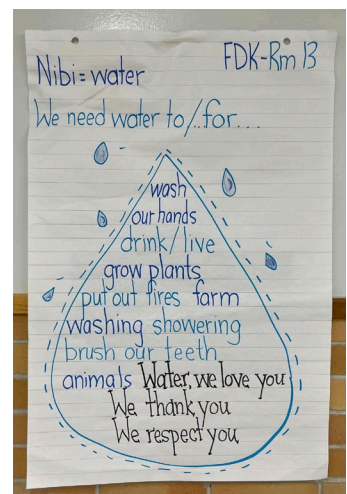 FDK-Rm 13
Nibi = water
We need water to/..for....
wash
our hands
drink/live
grow plants
put out fires farm
washing showering
brush our teeth
animals Water, we love you
We thank you
We respect you